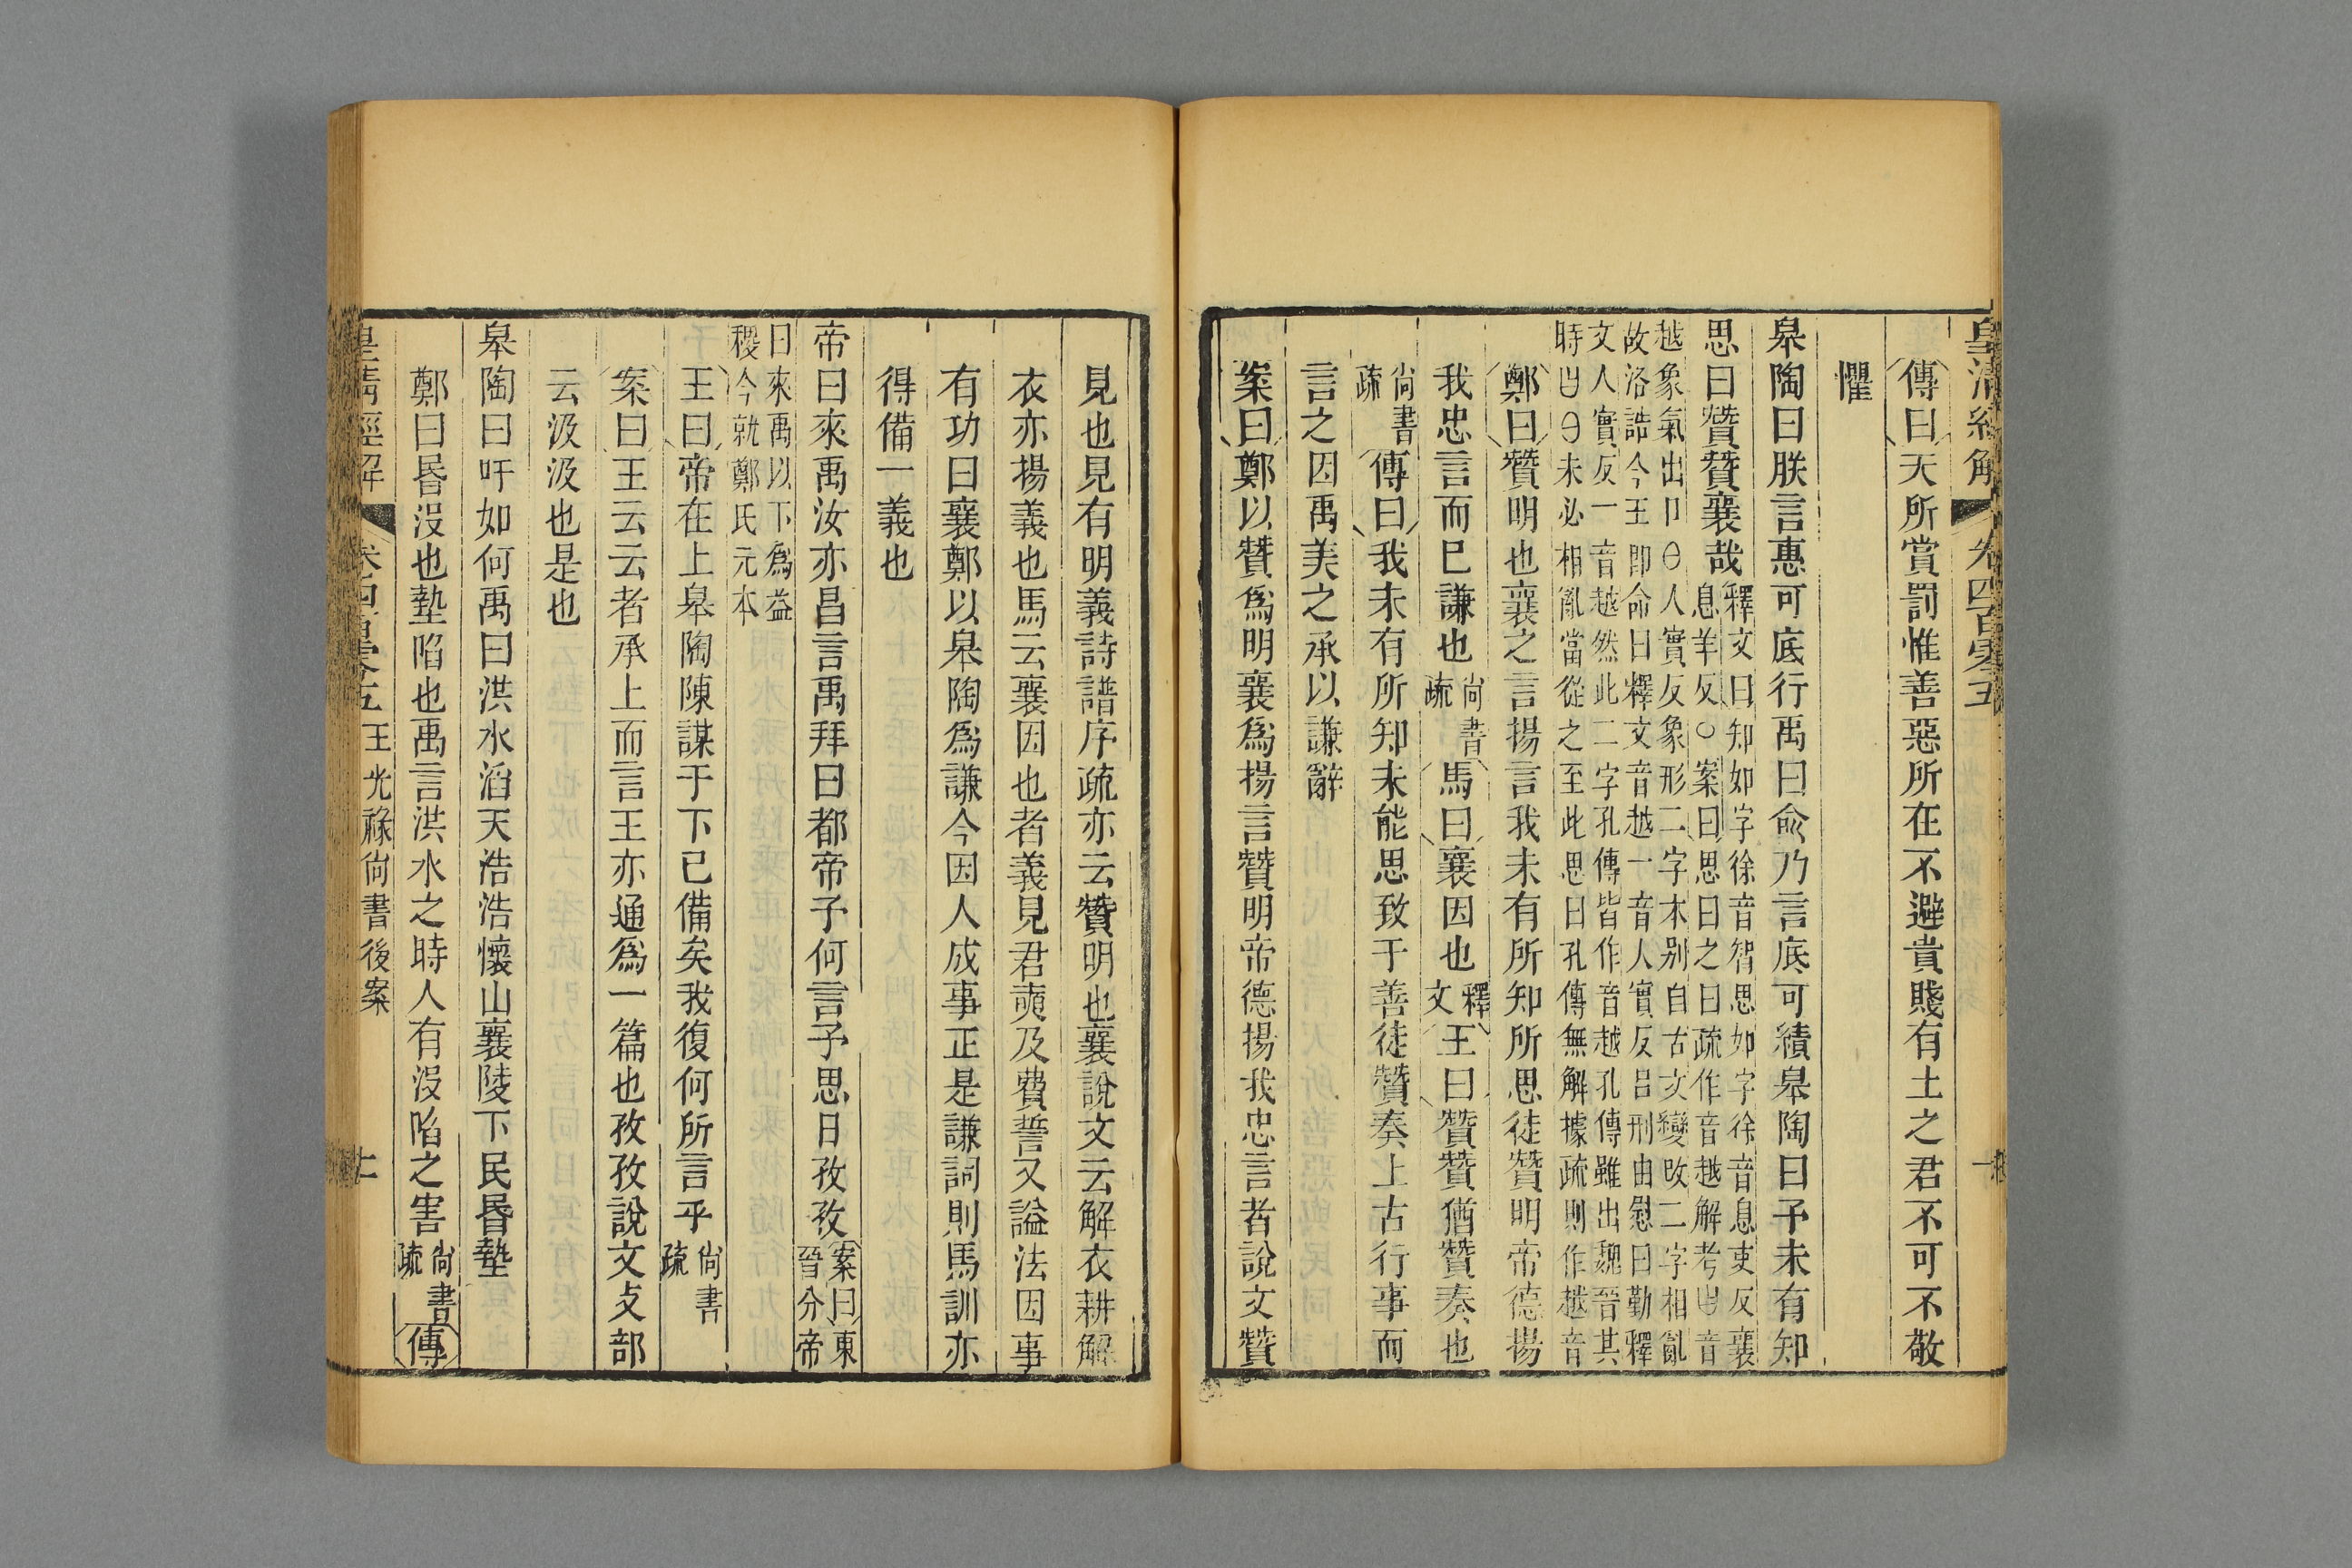 皇清經解 卷四百零五
傳曰天所賞罰惟善惡所在不避貴賤有土之君不可不敬
懼
皋陶曰朕言惠可底行禹曰俞乃言底可績皋陶曰予未有知
思曰贊贊襄哉
釋文曰知如字徐音智思如字徐音息吏反襄
息羊反○案曰思曰之曰疏作音越解考𠙴音
越象氣出卩⊖人實反象形二字本别自古文變改二字相亂
故洛誥今王即命曰釋文音越一音人實反呂刑由慰曰勤釋
文人實反一音越然此二字孔傳皆作音越孔傳雖出魏晉其
時𠙴⊖未必相亂當從之至此思曰孔傳無解據疏則作越音
鄭曰贊明也襄之言揚言我未有所知所思徒贊明帝德揚
我忠言而已謙也尚書疏馬曰襄因也釋文王曰贊贊猶贊奏也
尚書疏傳曰我未有所知未能思致于善徒贊奏上古行事而
言之因禹美之承以謙辭
案曰鄭以贊爲明襄爲揚言贊明帝德揚我忠言者說文贊
見也見有明義詩譜序疏亦云贊明也襄說文云解衣耕解
衣亦揚義也馬云襄因也者義見君奭及費誓又謚法因事
有功曰襄鄭以皋陶爲謙今因人成事正是謙詞則馬訓亦
得備一義也
帝曰來禹汝亦昌言禹拜曰都帝予何言予思日孜孜
案曰東
晉分帝
曰來禹以下爲益
稷今就鄭氏元本
王曰帝在上皋陶陳謀于下已備矣我復何所言乎尚書疏
案曰王云云者承上而言王亦通爲一篇也孜孜說文攴部
云汲汲也是也
皋陶曰吁如何禹曰洪水滔天浩浩懷山襄陵下民昬墊
鄭曰昬沒也墊陷也禹言洪水之時人有沒陷之害尚書疏傳
皇清經解 卷四百零五 王光祿尚書後案